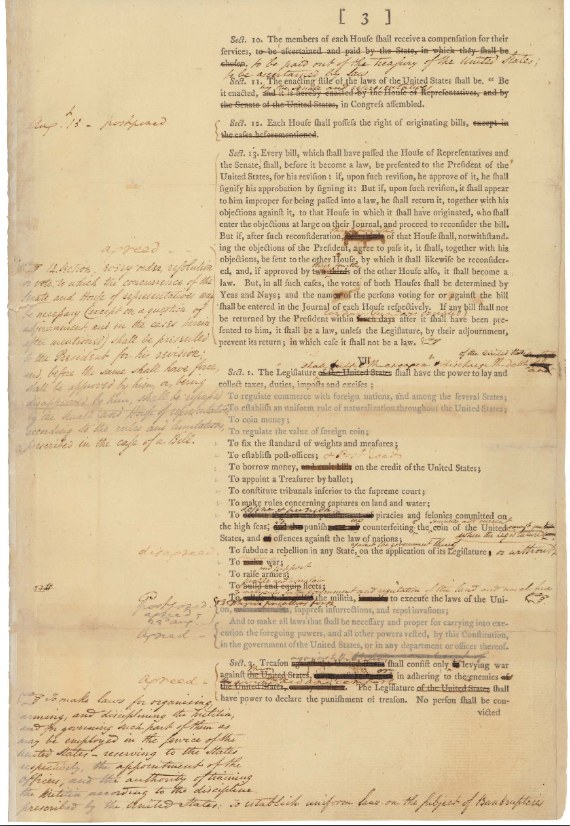 [ 3 ]
Sect. 10. The members of each House shall receive a compensation for their
services, to be ascertained and paid by the State, in which they shall be
chosen. to be paid out of the treasury of the United States;
to be ascertained by law
Sect. 11. The enacting stile of the laws of the United States shall be. "Be
it enacted, and it is hereby enacted by the House of Representatives, and by
the Senate of the United States, in Congress assembled.
by the Senate and representatives
Aug. 15 - postponed
Sect. 12. Each House shall possess the right of originating bills, except in
the cases beforementioned.
Sect. 13. Every bill, which shall have passed the House of Representatives and
the Senate, shall, before it become a law, be presented to the President of the
United States, for his revision: if, upon such revision, he approve of it, he shall
signify his approbation by signing it: But if, upon such revision, it shall appear
to him improper for being passed into a law, he shall return it, together with his
objections against it, to that House in which it shall have originated, who shall
enter the objections at large on their Journal, and proceed to reconsider the bill.
But if, after such reconsideration, of that House shall, notwithstand-
ing the objections of the President, agree to pass it, it shall, together with his
objections, be sent to the other House, by which it shall likewise be reconsider-
ed, and, if approved by two thirds of the other House also, it shall become a
law. But, in all such cases, the votes of both Houses shall be determined by
Yeas and Nays; and the names of the persons voting for or against the bill
shall be entered in the Journal of each House respectively. If any bill shall not
be returned by the President within seven days after it shall have been pre-
sented to him, it shall be a law, unless the Legislature, by their adjournment,
prevent its return; in which case it shall not be a law.
agreed -
14 Section. every order, resolution
or vote, to which the concurrence of the
Senate and House of representatives may
be necessary (except on a question of
adjournment and in the cases herein
after mentioned) shall be presented
to the President for his revision;
and before the same shall have force,
shall be approved by him, or, being
disapproved by him, shall be repassed
by the Senate and House of representatives,
according to the rules and limitations
prescribed in the case of a Bill.
VII
of the United States
Sect. 1. The Legislature of the United States shall have the power to lay and
collect taxes, duties, imposts and excises;
To regulate commerce with foreign nations, and among the several States;
To establish an uniform rule of naturalization throughout the United States;
To coin money;
To regulate the value of foreign coin;
To fix the standard of weights and measures;
To establish post-offices; & Post Roads
To borrow money, and emit bills on the credit of the United States;
To appoint a Treasurer by ballot;
To constitute tribunals inferior to the supreme court;
To make rules concerning captures on land and water;
define & punish
To piracies and felonies committed on
the high seas; counterfeiting the coin of the United
States, and offences against the law of nations;
disagreed
To subdue a rebellion in any State, on the application of its Legislature; or without
To war;
and support
To raise armies;
To build and equip fleets;
Postponed
agreed
22d aug.
To the militia, to execute the laws of the Uni-
on, suppress insurrections, and repel invasions;
Agreed -
And to make all laws that shall be necessary and proper for carrying into exe-
cution the foregoing powers, and all other powers vested, by this Constitution,
in the government of the United States, or in any department or officer thereof.
Sect. 2. Treason shall consist only in levying war
against the United States, in adhering to the enemies of
the United States, The Legislature of the United States shall
have power to declare the punishment of treason. No person shall be con-
victed
agreed -
To make laws for organising
arming, and disciplining the Militia,
and for governing such part of them as
may be employed in the service of the
United States - reserving to the States
respectively, the appointment of the
officers, and the authority of training
the Militia according to the discipline
prescribed by the United States; to establish uniform laws on the subject of Bankruptcies